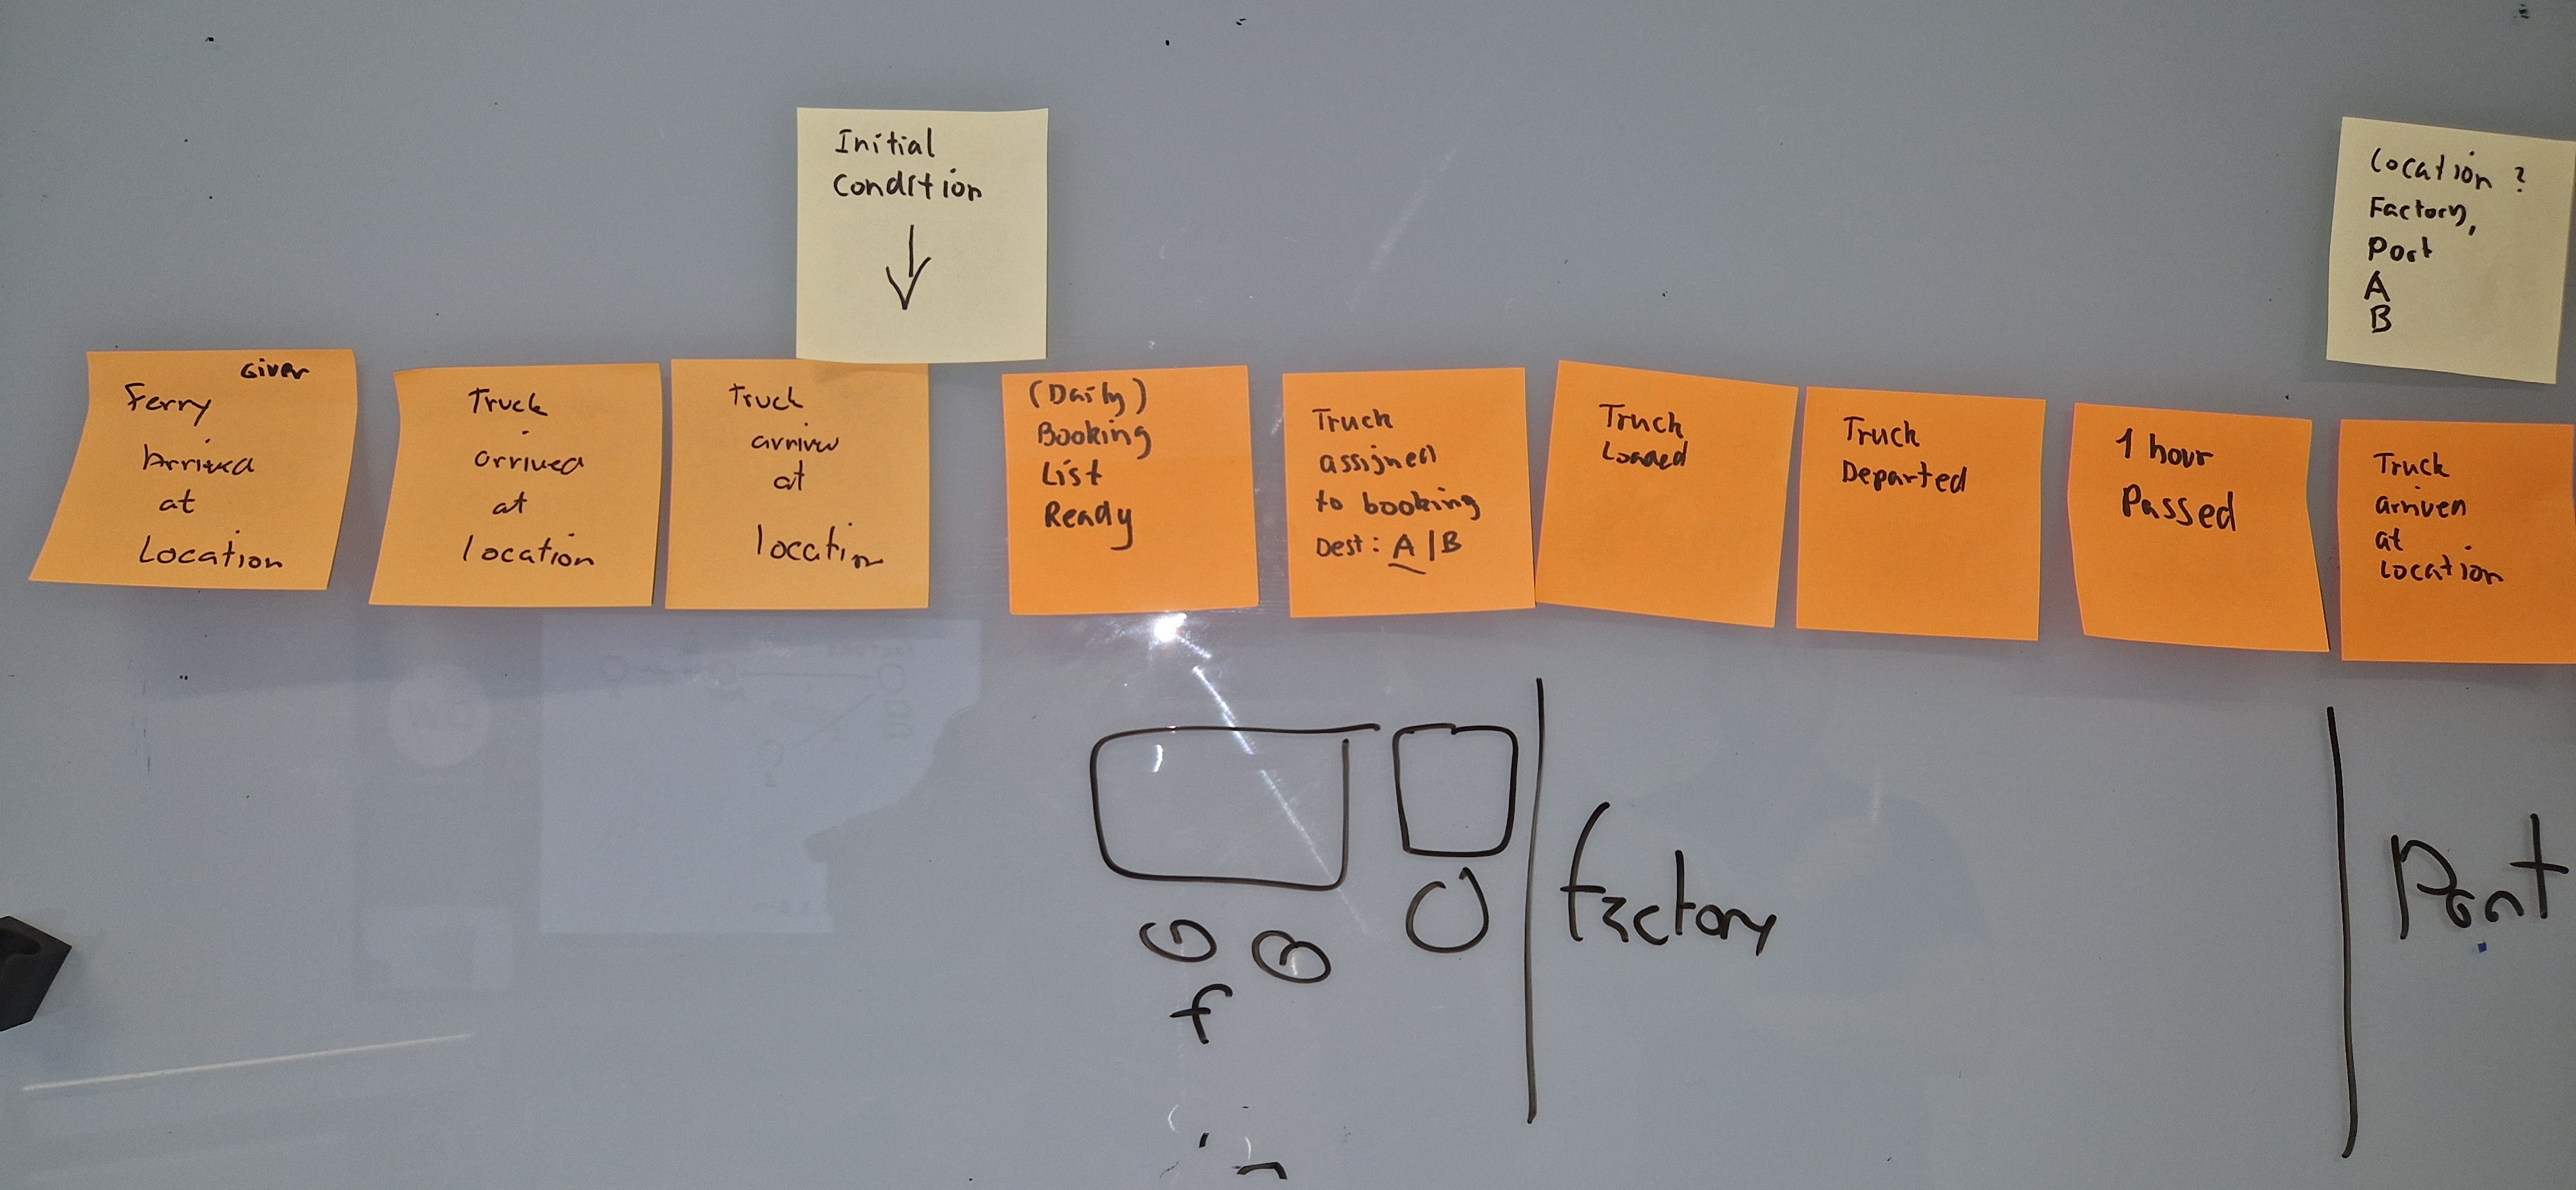 Initial
Condition
Location ?
Factory,
Port
A
B
Given
Ferry
Arrived
at
Location
Truck
arrived
at
location
Truck
arrived
at
location
(Daily)
Booking
List
Ready
Truck
assigned
to booking
Dest: A | B
Truck
Loaded
Truck
Departed
1 hour
Passed
Truck
arrived
at
Location
factory
Port
f